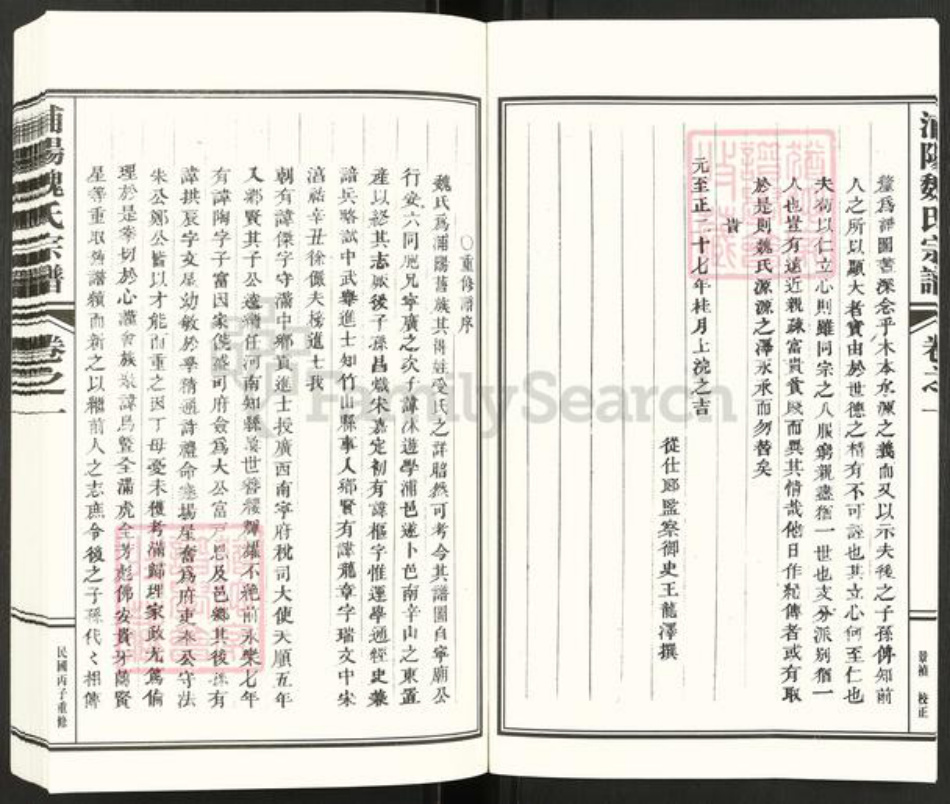 浦陽魏氏宗譜
卷之一
景禎 校正
鼇為譜圖舊深念乎木本水源之義而又以示夫後之子孫俾知前
人之所以顯大者實由於世德之積有不可誣也其立心何至仁也
夫苟以仁立心則雖同宗之人服窮親盡猶一世也支分派別猶一
人也豈有遠近親疎富貴貧賤而異其情哉他日作紀傳者或有取
於是則魏氏源源之澤永承而勿替矣
旹
元至正二十七年桂月上浣之吉
從仕郎監察御史王龍澤撰
○重修譜序
魏氏為浦陽舊族其得姓受氏之詳昭然可考今其譜圖自寧廟公
行安六同兄寧廣之次子諱沐遊學浦邑遂卜邑南辛山之東置
產以終其志厥後子孫昌熾宋嘉定初有諱樞字惟運學通經史兼
諳兵略試中武舉進士知竹山縣事入鄉賢有諱龍章字瑞文中宋
淳祐辛丑徐儼夫榜進士我
朝有諱傑字守滿中鄉貢進士授廣西南寧府稅司大使天順五年
入鄉賢其子公遠補任河南知縣奕世簪纓輝耀不絕前永樂七年
有諱陶字子富因家饒盛司府僉為大公富戶恩及邑鄉其後孫有
諱拱辰字文星幼敏於學精通詩禮命應揚星奮為府吏奉公守法
朱公鄭公皆以才能而重之因丁母憂未獲考滿歸理家政尤篤倫
理於是孝切於心謹會族眾諱鳥暨全滿虎全芳彪佛安貴牙蘭賢
星等重取舊譜續而新之以繼前人之志庶令後之子孫代々相傳
浦陽魏氏宗譜
卷之一
民國丙子重修
FamilySearch